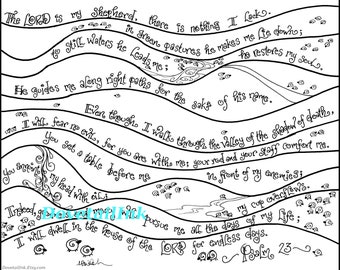 The LORD is my shepherd, there is nothing I lack.
in green pastures he makes me lie down;
to still waters he leads me;
he restores my soul.
He guides me along right paths for the sake of his name.
Even though I walk through the valley of the shadow of death,
I will fear no evil for you are with me; your rod and your staff comfort me.
You set a table before me in front of my enemies;
You anoint my head with oil;
my cup overflows.
Indeed, pursue me all the days of my life;
I will dwell in the house of the LORD for endless days.
Psalm 23